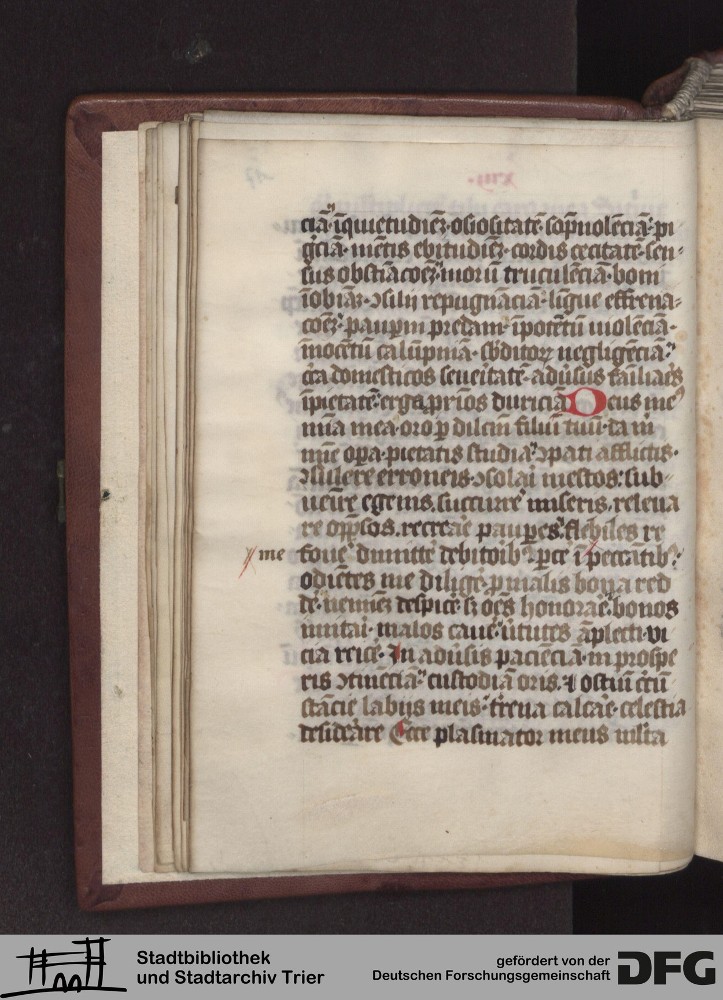 ciā·īquietudinē·ociositatē·sōpnolēciā·pi
gciā·mētis ebitudinē·cordis cecitatē·sen-
sus obstīacoēꝫ·morū truculēciā·boni
repugnāciā·ligue effrena-
coēꝫ·paupm predam·īpotētū violēciā·
īnocētū calūpniā·sb̄ditoꝝ negligēciā·
cͥca domesticos seueitatē·adūsus failiaēs
īpietatē·erga prios duriciā Deus me
mia mea·oro ꝑ dilcm filiū tuū·da m
michi opa·pietatis studia·ɔpati afflictis·
ɔsulere erroneis·ɔsolai mestos·sub-
ueīre egenis·succurrē miseris·releua
re opp̄sos·recreāe paupes·flebiles re
me foue·dimittē debitoib·ꝑcē ī peccātib·
odiētes me diligē·ꝑ malis bona red
dē·neminē despicē·sꝫ oēs honorāe·bonos
imitai·malos cauē·ūtutes āplecti·vi
cia reicē·In adūsis paciēciā·in prospe
ris ɔtinēciā·custodiā oris·⁊ ostiū cͥcū
stācie labijs meis·t̄rena calcāe·celestia
desiderāre Ecce plasmator meus mlta
Stadtbibliothek
und Stadtarchiv Trier
gefördert von der
Deutschen Forschungsgemeinschaft
DFG